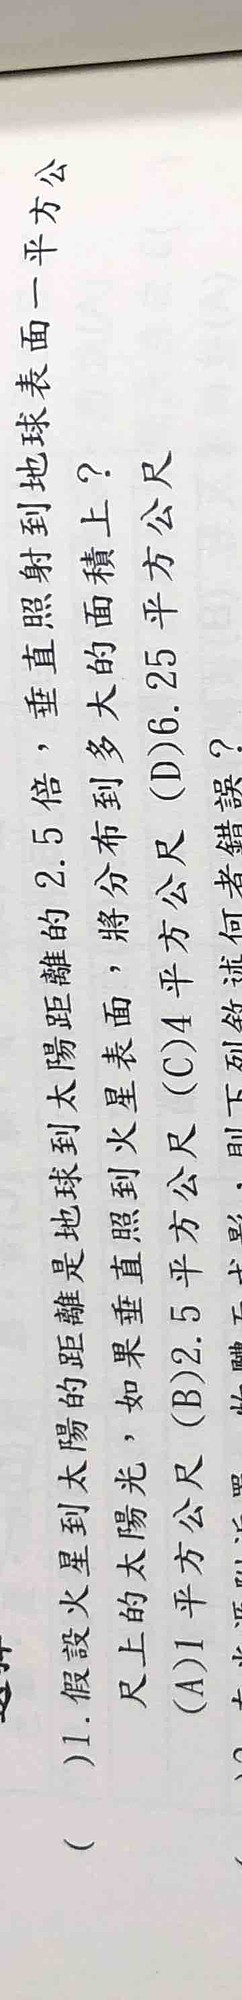 (　　)1.假設火星到太陽的距離是地球到太陽距離的 2.5 倍，垂直照射到地球表面一平方公
尺上的太陽光，如果垂直照到火星表面，將分布到多大的面積上？
(A)1 平方公尺 (B)2.5 平方公尺 (C)4 平方公尺 (D)6.25 平方公尺
則下列敘述何者錯誤？